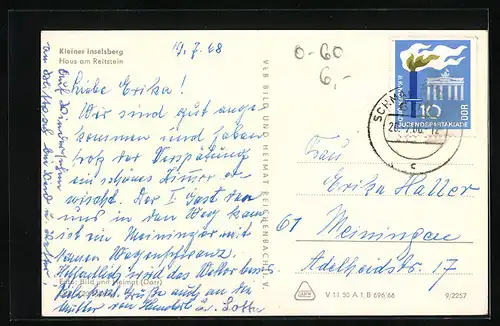 Kleiner Inselsberg
Haus am Reitstein
19.7.68
Liebe Erika!
Wir sind gut ange-
kommen und haben
trotz der Verspätung
ein schönes Zimmer er-
wischt. Der I. Gast der
uns in den Weg kam
ist ein Meininger mit
Hoffentlich wird das Wetter
Grüße auch an die
Mutter von u. Lotte
Auf Wiedersehen
Foto: Bild und Heimat (Darr)
VEB BILD UND HEIMAT REICHENBACH i. V.
0-60
6,-
II. KINDER- UND
JUGENDSPARTAKIADE
10
DDR
SCHM
c
Frau
Erika Haller
61 Meiningen
Adelheidstr. 17
V 11 50 A 1/B 696/66
9/2257